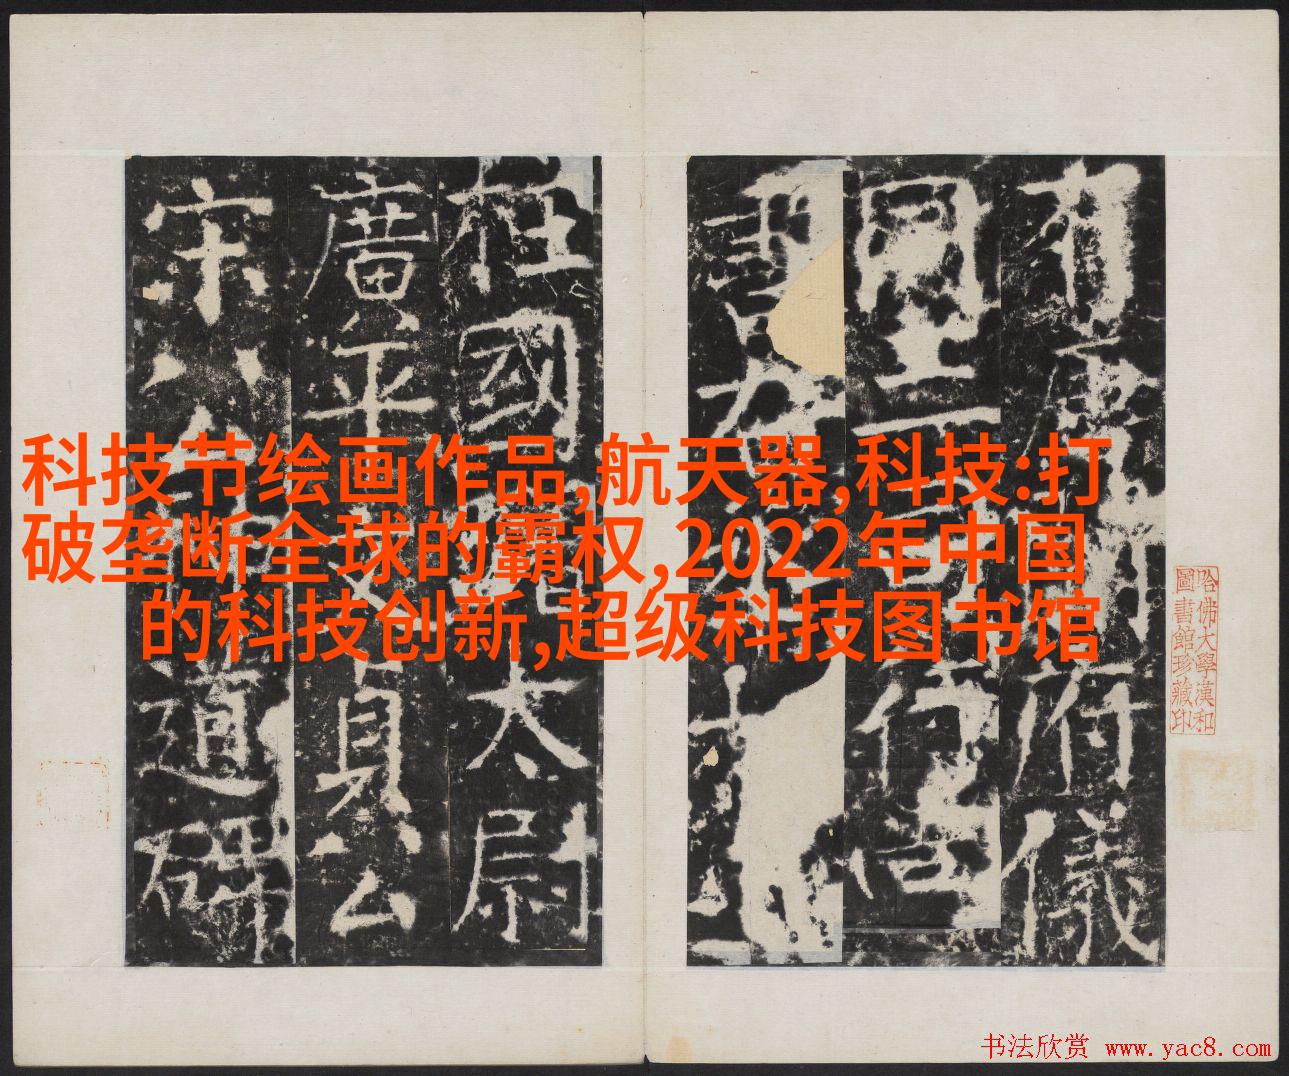 科技节绘画作品,航天器,科技:打
破垄断全球的霸权,2022年中国
的科技创新,超级科技图书馆
有唐開府儀
同三司行尚
書右丞上
柱國太尉
廣平文貞公
宋公神道碑
哈佛大學漢和
圖書館珍藏印
书法欣赏 www.yac8.com